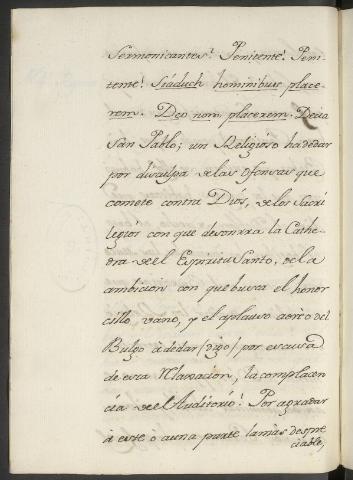 Sermonicantes? Penitente! Peni-
tente! Siáduch hominibus place-
rem. Deo non placerem. Decia
San Pablo; un Religioso ha de dar
por disculpa de las Ofensas que
comete contra Diós, de los Sacri
legios con que desonrra la Cathe-
dra de el Espiritu Santo, de la
ambicion con que busca el honor
cillo vano, y el aplauso aereo del
Bulgo à de dar /digo/ por escusa d
de esta relaxacion, la complacen
cia de el Auditorio! Por agradar
à este o a una parte la mas despre
ciable,